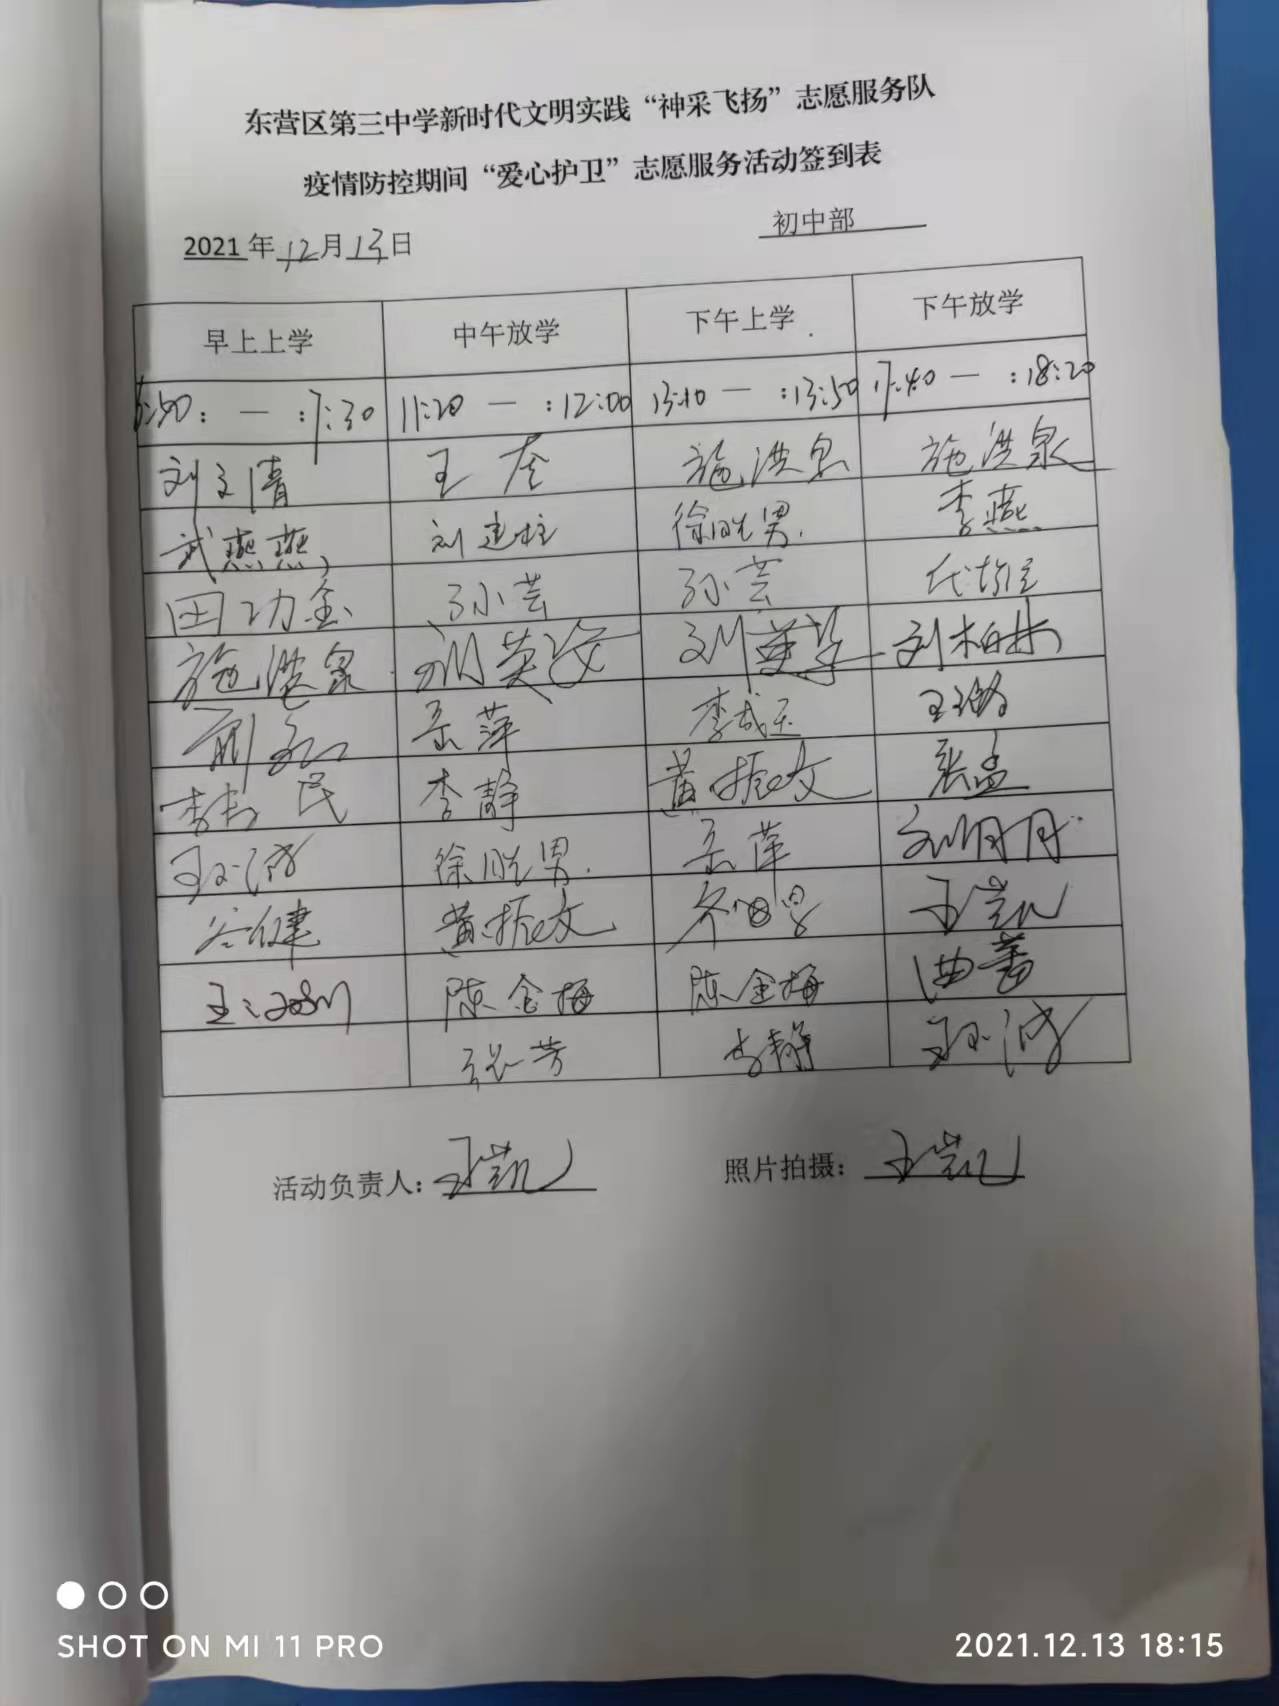 东营区第三中学新时代文明实践“神采飞扬”志愿服务队
疫情防控期间“爱心护卫”志愿服务活动签到表
2021年12月13日 初中部
早上上学 中午放学 下午上学 下午放学
6:50: — :7:30 11:20 — :12:00 13:10 — :13:50 17:40 — :18:20
刘文清 王奎 施洪泉 施洪泉
武燕燕 刘建柱 徐胜男 李燕
田功金 孙芸 孙芸
施洪泉 刘英 刘 刘柏林
岳萍 李成玉 王璐
李 民 李静 黄振文 张孟
徐胜男 岳萍 刘丹丹
谷健 黄振文 王凯
陈金梅 陈金梅 曲蕾
张芳 李静
活动负责人：王凯 照片拍摄：王凯
SHOT ON MI 11 PRO
2021.12.13 18:15